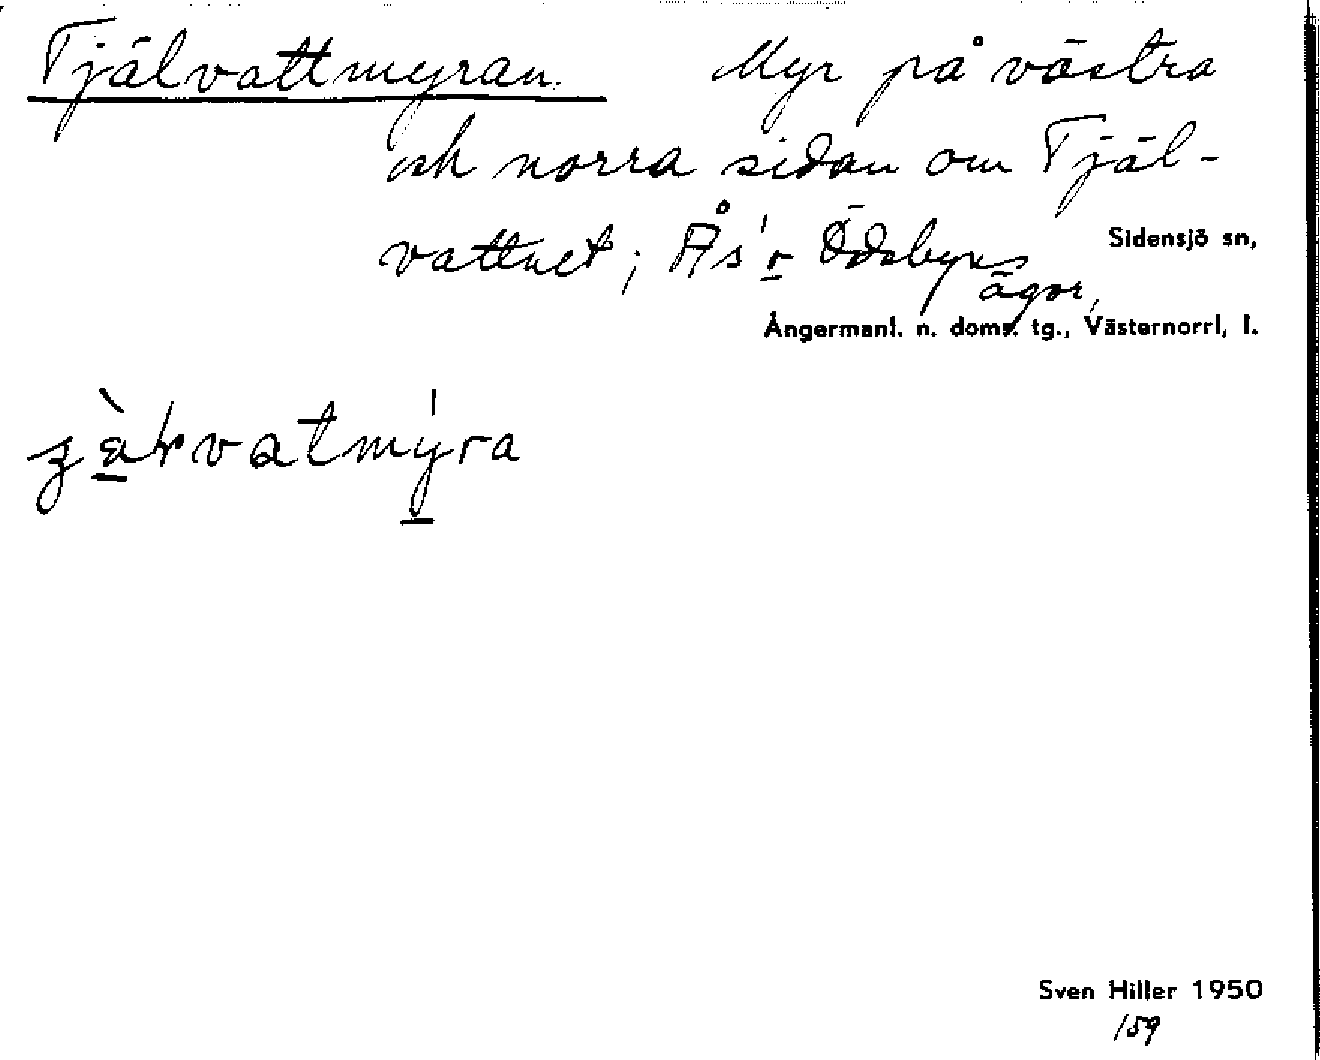 Tjälvattmyran. Myr på västra
och norra sidan om Tjäl-
vattnet; Ås'r Ödsbyns
ägor,
Sidensjö sn,
Ångermanl. n. doms. tg., Västernorrl, l.
Sven Hiller 1950
159